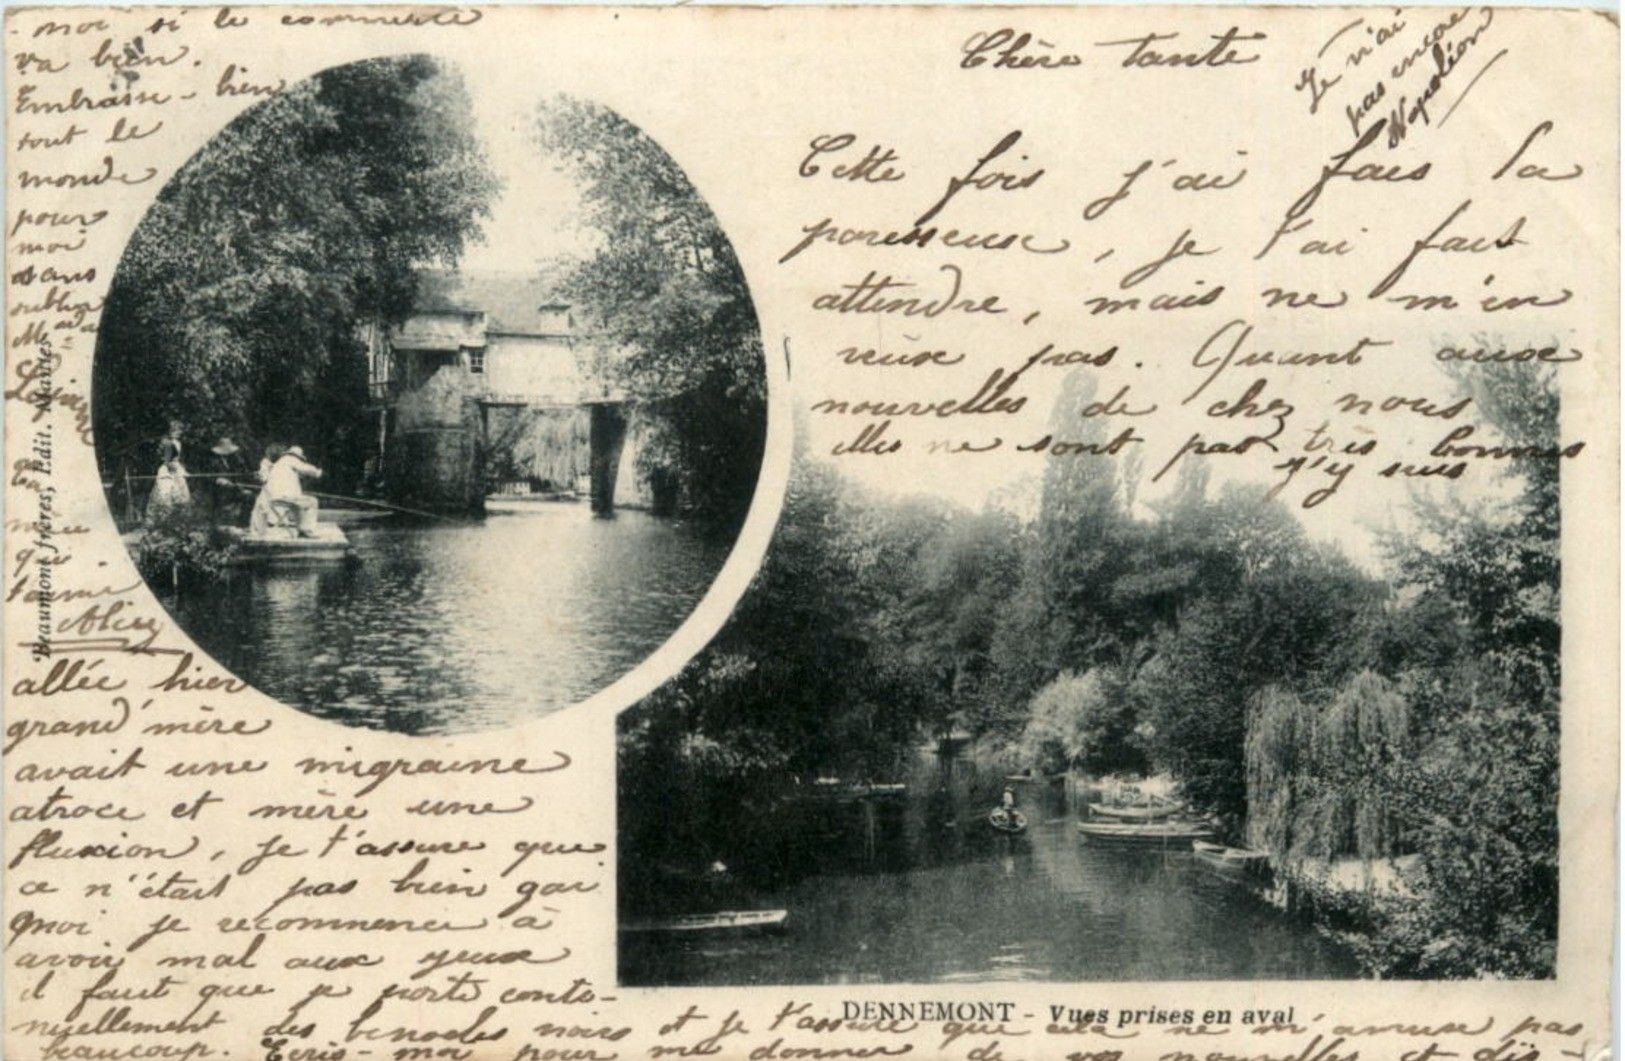 Chère tante
Je n'ai
pas encore
Napoléon
Cette fois j'ai fais la
paresseuse, je t'ai fait
attendre, mais ne m'en
veux pas. Quant aux
nouvelles de chez nous
elles ne sont pas très bonnes
j'y suis
allée hier
grand'mère
avait une migraine
atroce et mère une
fluxion, je t'assure que
ce n'était pas bien gai
moi je recommence à
avoir mal aux yeux
il faut que je porte conti-
nuellement des binocles noirs et je t'assure que cela ne m'amuse pas
beaucoup. Ecris-moi pour me donner de vos nouvelles et dis-
-moi si le commerce
va bien.
Embrasse-bien
tout le
monde
pour
moi
sans
oublier
Ta
nièce
qui
t'aime
Alice
Beaumont frères, Edit. Mantes
DENNEMONT - Vues prises en aval